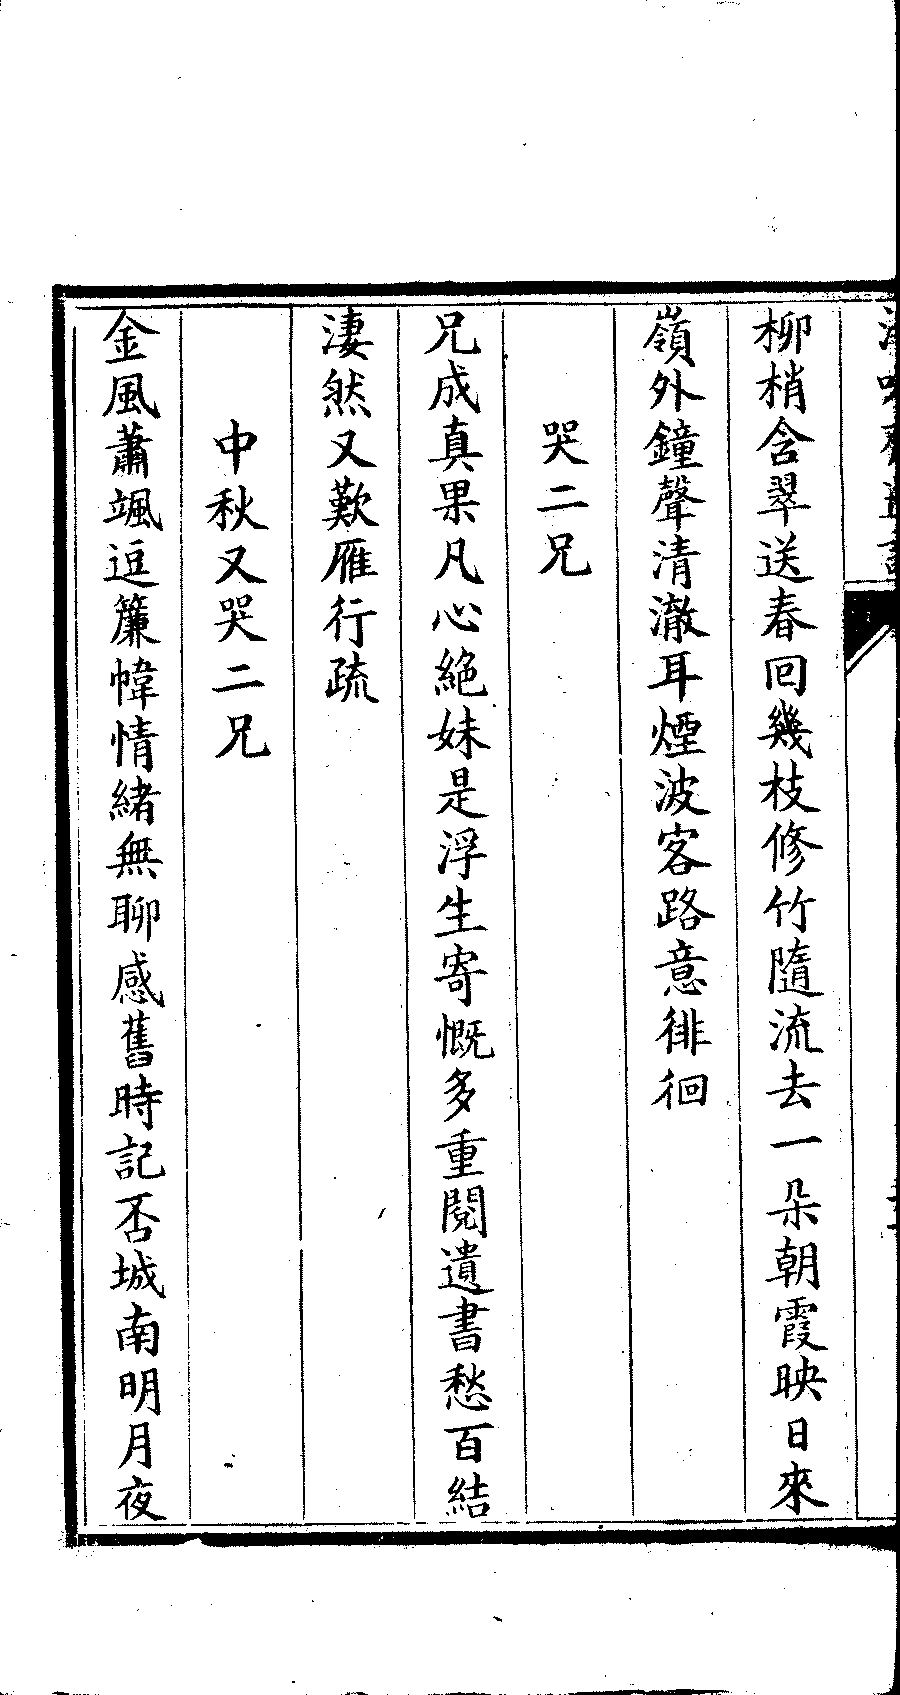 柳梢含翠送春回幾枝修竹隨流去一朵朝霞映日來
嶺外鐘聲清澈耳煙波客路意徘徊
哭二兄
兄成真果凡心絕妹是浮生寄慨多重閱遺書愁百結
淒然又歎雁行疏
中秋又哭二兄
金風蕭颯逗簾幃情緒無聊感舊時記否城南明月夜